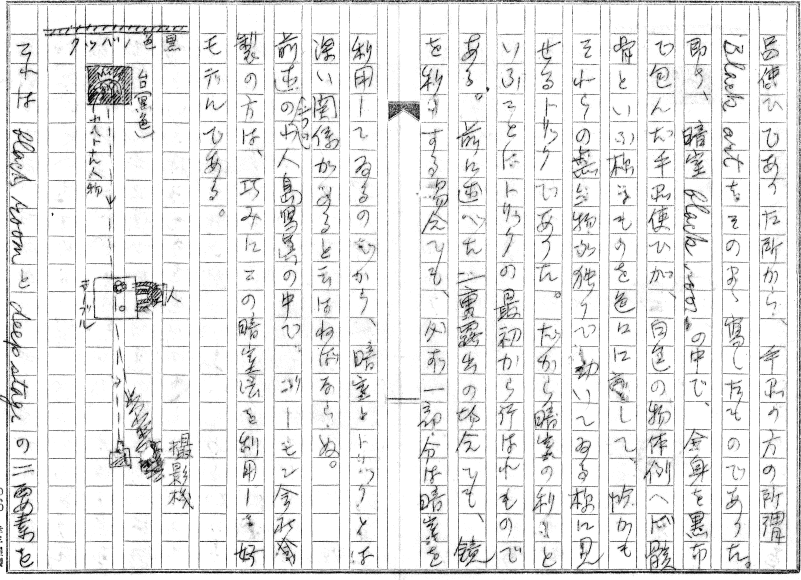 品使ひであつた所から、手品の方の所謂
Black artをそのまゝ寫したものであつた。
即ち、暗室 black room の中で、全身を黒布
で包んだ手品使ひが、白色の物体例へば骸
骨といふ様なものを色々に動かして、恰かも
それらの無生物が独りで動いてゐる様に見
せるトリックであつた。だから暗室の利用と
いふことはトリックの最初から行はれたもので
ある。前に述べた二重露出の場合でも、鏡
を利用する場合でも、必ず一部分は暗室を
利用してゐるのだから、暗室とトリックとは
深い関係があると云はねばならぬ。
前述の小人島寫眞の中で、ゴーモン会社
製の方は、巧みにこの暗室法を利用した好
もでんである。
黒色バック
台(黒色)
人物
テーブル
人
撮影機
それは black room と deep stage の二要素を